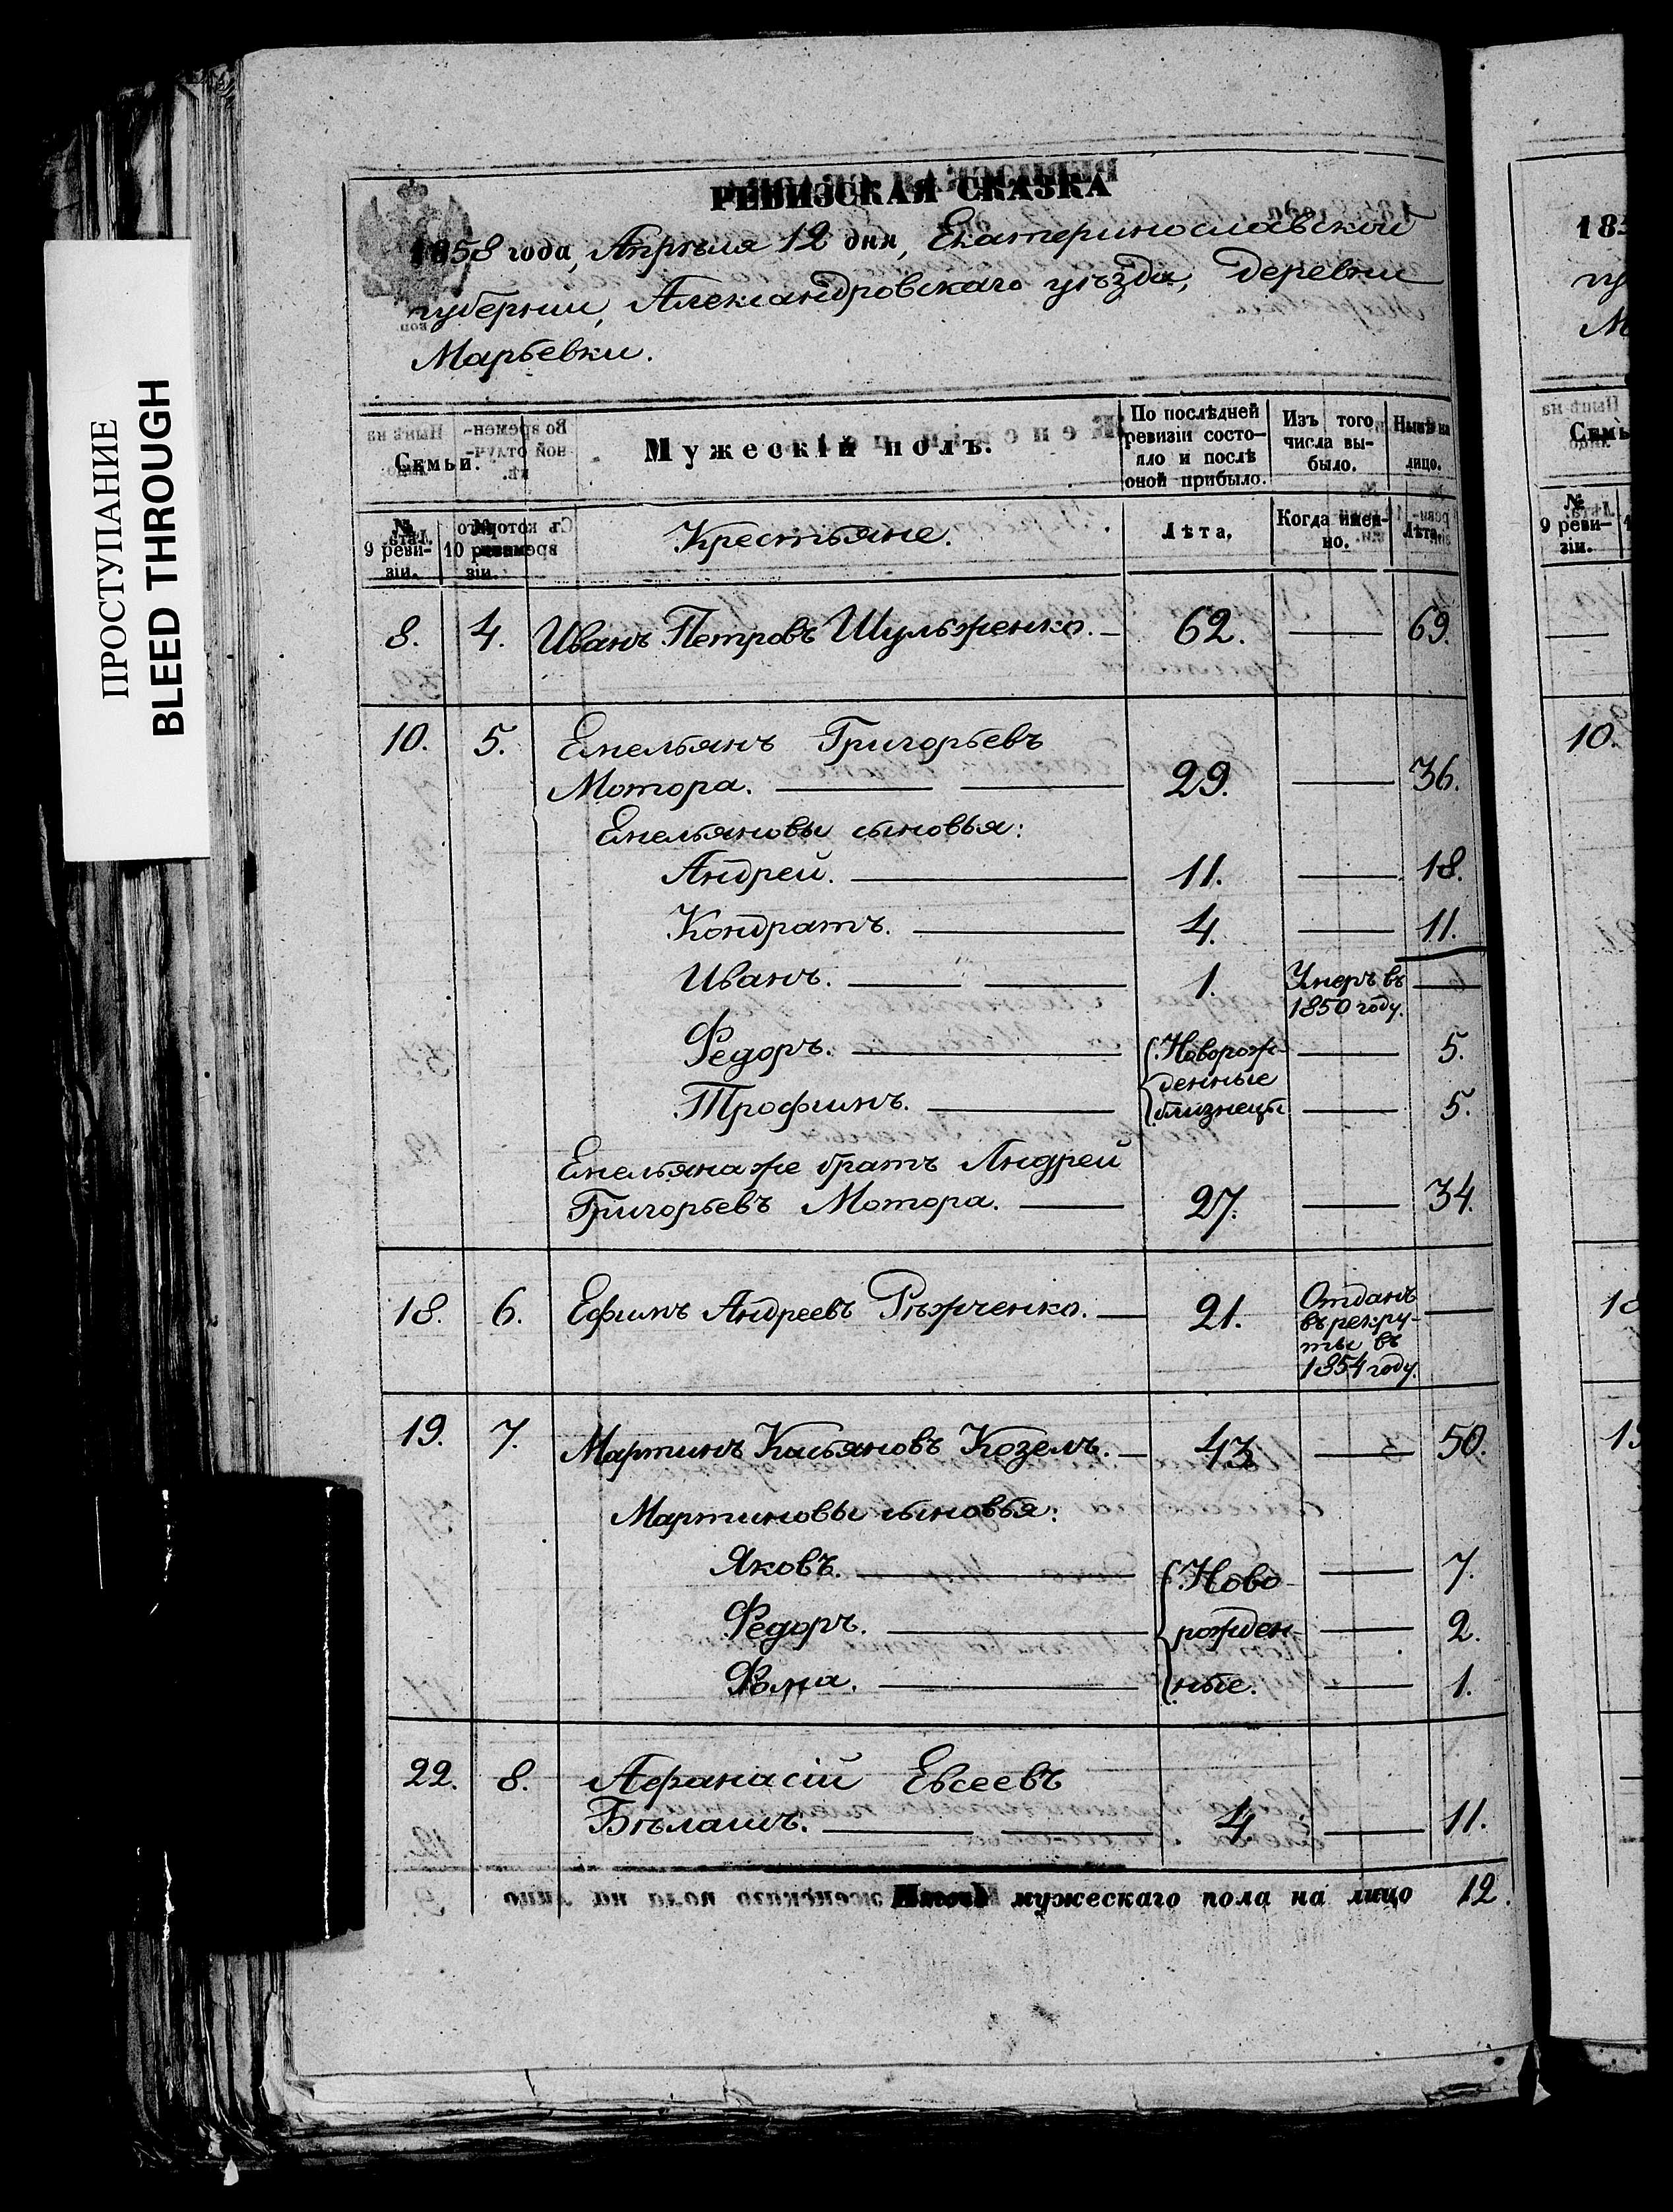 ПРОСТУПАНИЕ
BLEED THROUGH
РЕВИЗСКАЯ СКАЗКА
1858 года, Апрѣля 12 дня, Екатеринославской
губернии, Александровскаго уѣзда, деревни
Марьевки.
Семьи.
Мужескій полъ.
По послѣдней
ревизіи состо-
яло и послѣ
оной прибыло.
Изъ того
числа вы-
было.
Нынѣ на
лицо.
№
9 реви-
зіи.
№
10 ревизіи.
Крестьяне.
Лѣта.
Когда имен-
но.
Лѣта.
8. 4. Иванъ Петровъ Шульженко. — 62. — 69.
10. 5. Емельянъ Григорьевъ
Мотора. — 29. — 36.
Емельяновы сыновья:
Андрей. — 11. — 18.
Кондратъ. — 4. — 11.
Иванъ. — 1. Умеръ въ —
1850 году.
Федоръ. — Новорож- — 5.
денные
Трофимъ. — близнецы — 5.
Емельяна же братъ Андрей
Григорьевъ Мотора. — 27. — 34.
18. 6. Ефимъ Андреевъ Рѣжченко. — 21. Отданъ —
въ рекру-
ты въ
1854 году.
19. 7. Мартинъ Касьяновъ Козелъ. — 43 — 50.
Мартиновы сыновья:
Яковъ. — Ново- — 7.
Федоръ. — рожден- — 2.
Фома. — ные. — 1.
22. 8. Афанасій Евсеевъ
Бѣлашъ. — 4 — 11.
мужескаго пола на лицо 12.
183
гу
М
Семь
№
9 реви-
зіи.
10.
18
19